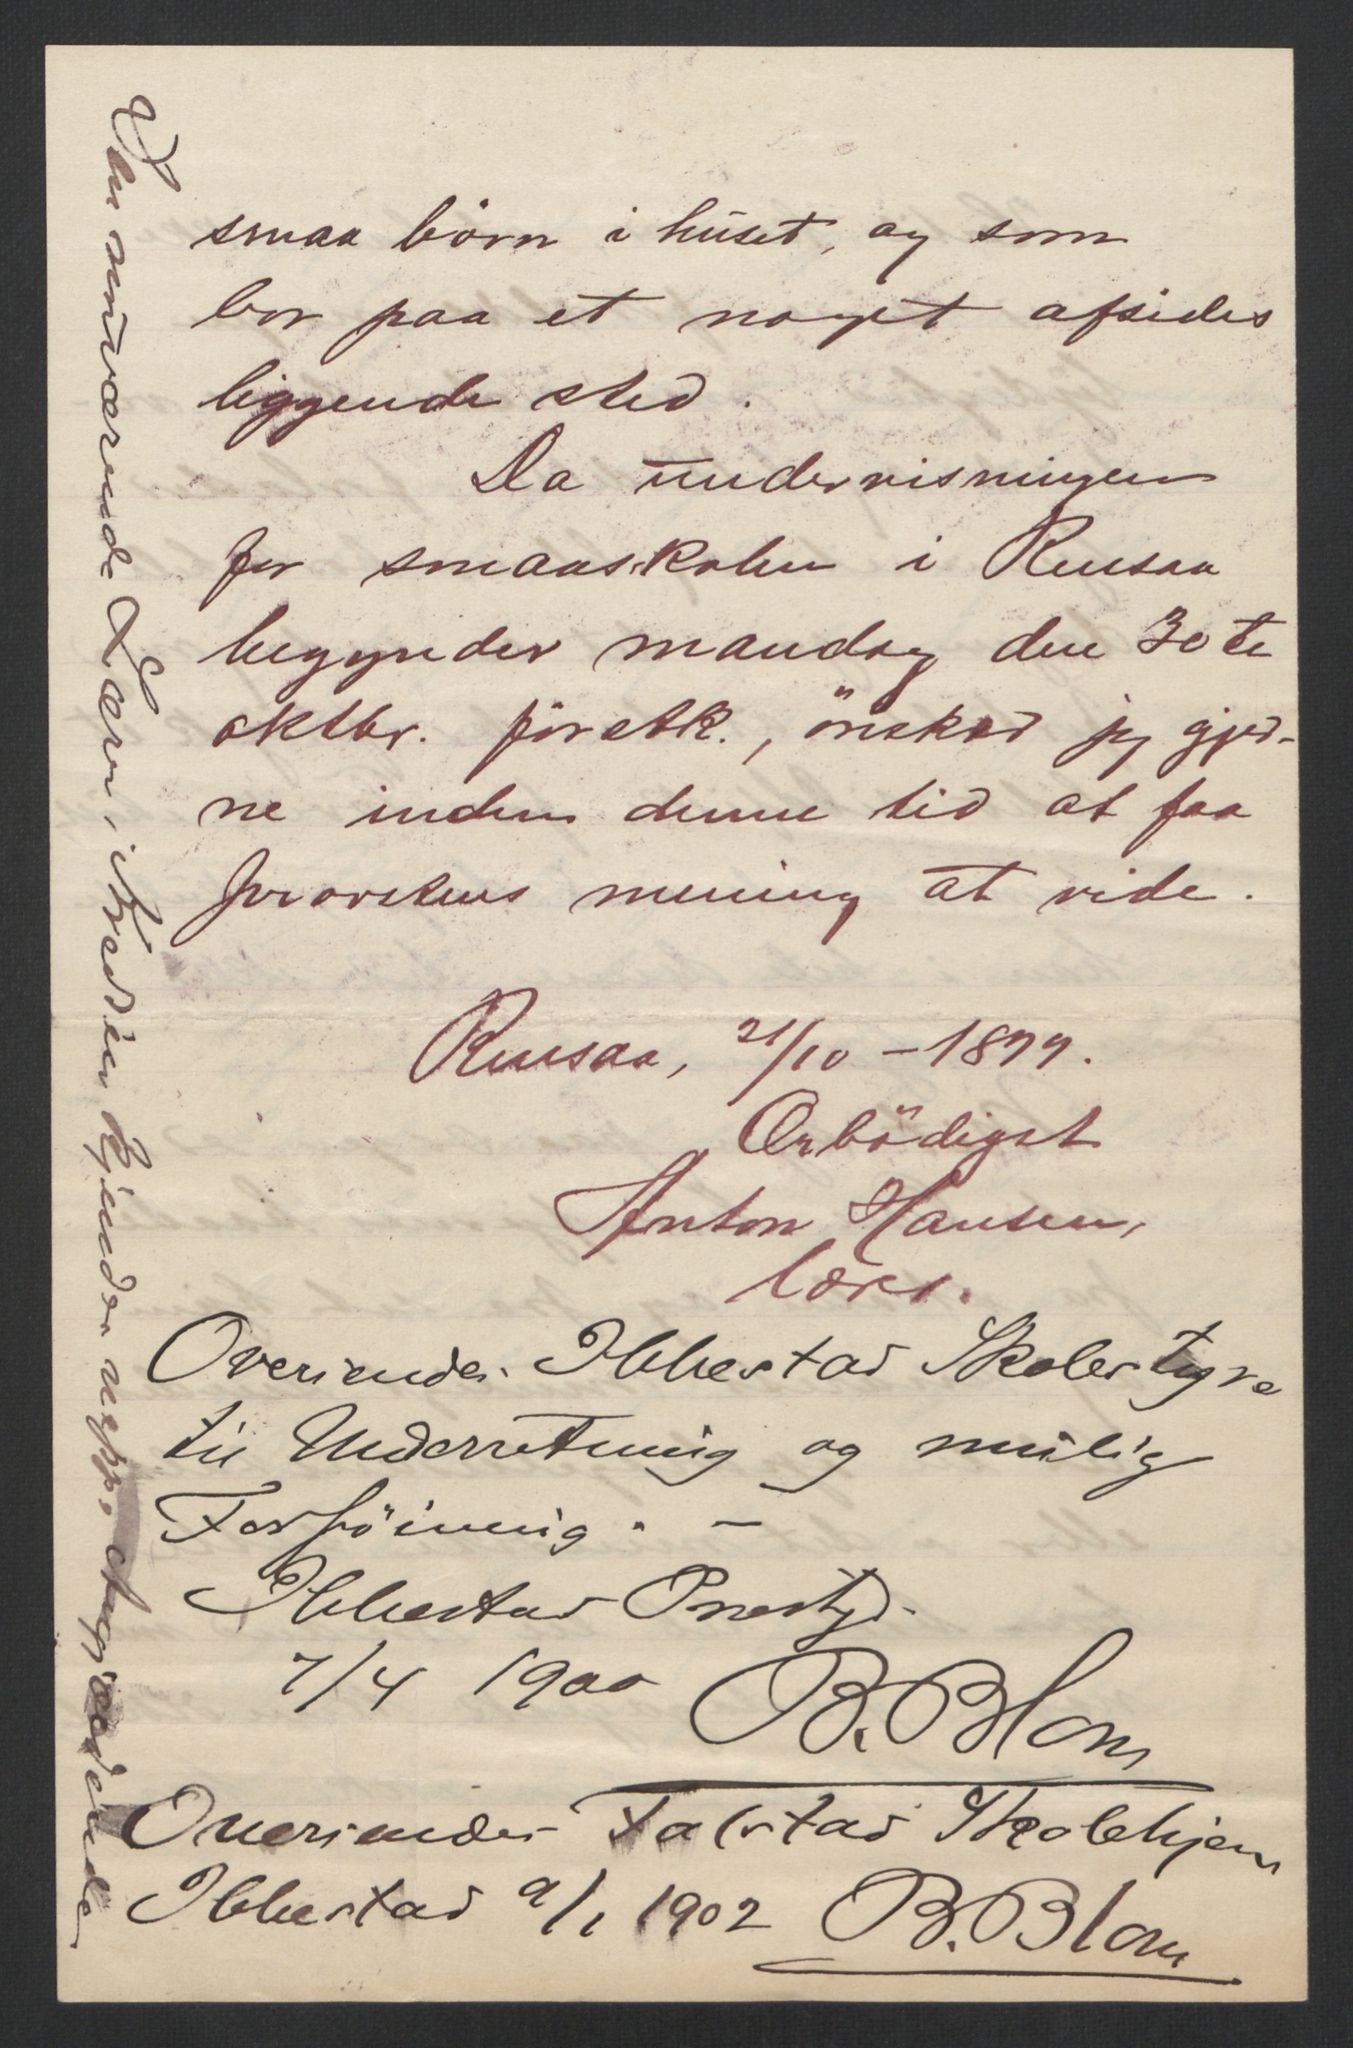 smaa börn i huset, og som
bor paa et noget afsides
liggende sted.
Da undervisningen
for smaaskolen i Rensaa
begynder mandag den 30te
oktbr. förstk., önsked jeg gjer-
ne inden denne tid at faa
provstens mening at vide.
Rensaa, 21/10 - 1899.
Ærbödigst
Anton Hansen,
lærer.
Oversendes Ibbestad Skolestyre
til Underretning og mulig
Forföining. -
Ibbestad Prestgd.
7/4 1900 B. Blom
Oversendes Falstad Skolehjem
Ibbestad 9/1 1902 B. Blom
Den nuværende Lærer i Kredsen kjender angjældende